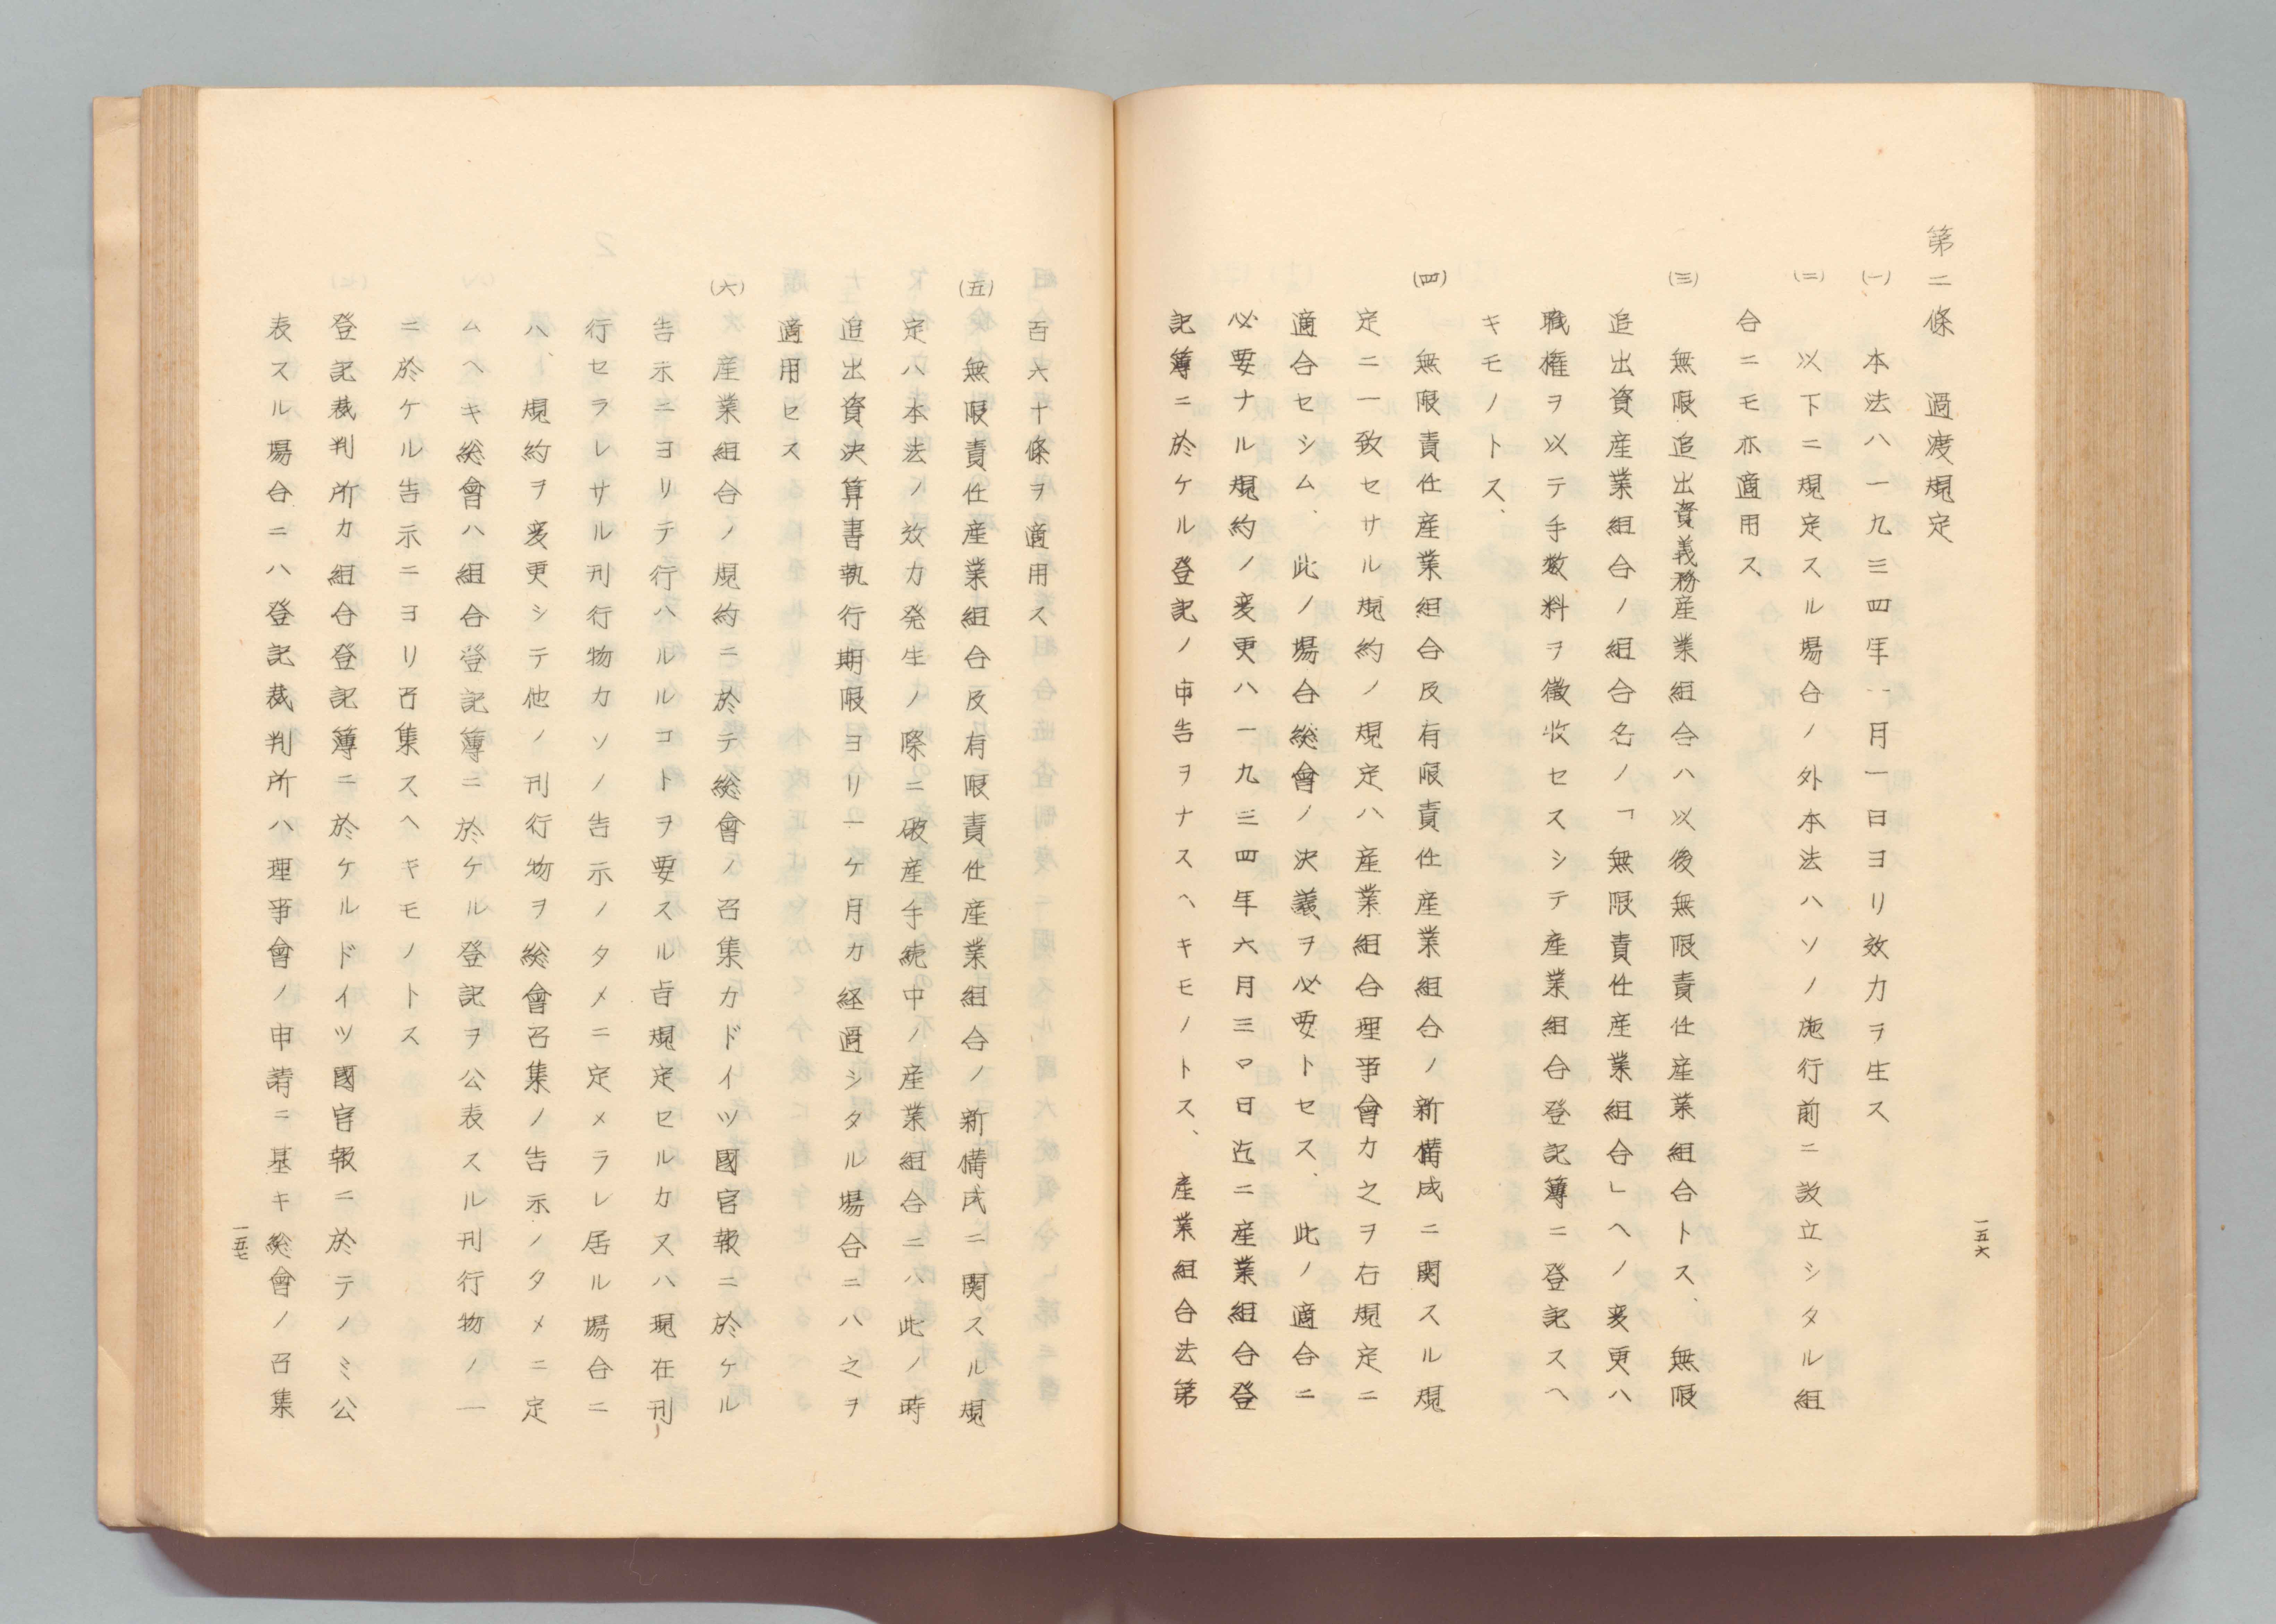 第二條　過渡規定
(一)　本法ハ一九三四年一月一日ヨリ效力ヲ生ス
(二)　以下ニ規定スル場合ノ外本法ハソノ施行前ニ設立シタル組
合ニモ亦適用ス、
(三)　無限追出資義務産業組合ハ以後無限責任産業組合トス、無限
追出資産業組合ノ組合名ノ「無限責任産業組合」ヘノ変更ハ
職権ヲ以テ手数料ヲ徴收セスシテ産業組合登記簿ニ登記スヘ
キモノトス、
(四)　無限責任産業組合及有限責任産業組合ノ新構成ニ関スル規
定ニ一致セサル規約ノ規定ハ産業組合理事會カ之ヲ右規定ニ
適合セシム、此ノ場合総會ノ決議ヲ必要トセス、此ノ適合ニ
必要ナル規約ノ変更ハ一九三四年六月三〇日迄ニ産業組合登
記簿ニ於ケル登記ノ申告ヲナスヘキモノトス、産業組合法第
一五六
百六十條ヲ適用ス
(五)　無限責任産業組合及有限責任産業組合ノ新構成ニ関スル規
定ハ本法ノ效力発生ノ際ニ破産手続中ノ産業組合ニハ此ノ時
追出資決算書執行期限ヨリ一ケ月カ経過シタル場合ニハ之ヲ
適用セス
(六)　産業組合ノ規約ニ於テ総會ノ召集カドイツ國官報ニ於ケル
告示ニヨリテ行ハルルコトヲ要スル旨規定セルカ又ハ現在刊
行セラレサル刊行物カソノ告示ノタメニ定メラレ居ル場合ニ
ハ、規約ヲ変更シテ他ノ刊行物ヲ総會召集ノ告示ノタメニ定
ムヘキ総會ハ組合登記簿ニ於ケル登記ヲ公表スル刊行物ノ一
ニ於ケル告示ニヨリ召集スヘキモノトス
登記裁判所カ組合登記簿ニ於ケルドイツ國官報ニ於テノミ公
表スル場合ニハ登記裁判所ハ理事會ノ申請ニ基キ総會ノ召集
一五七